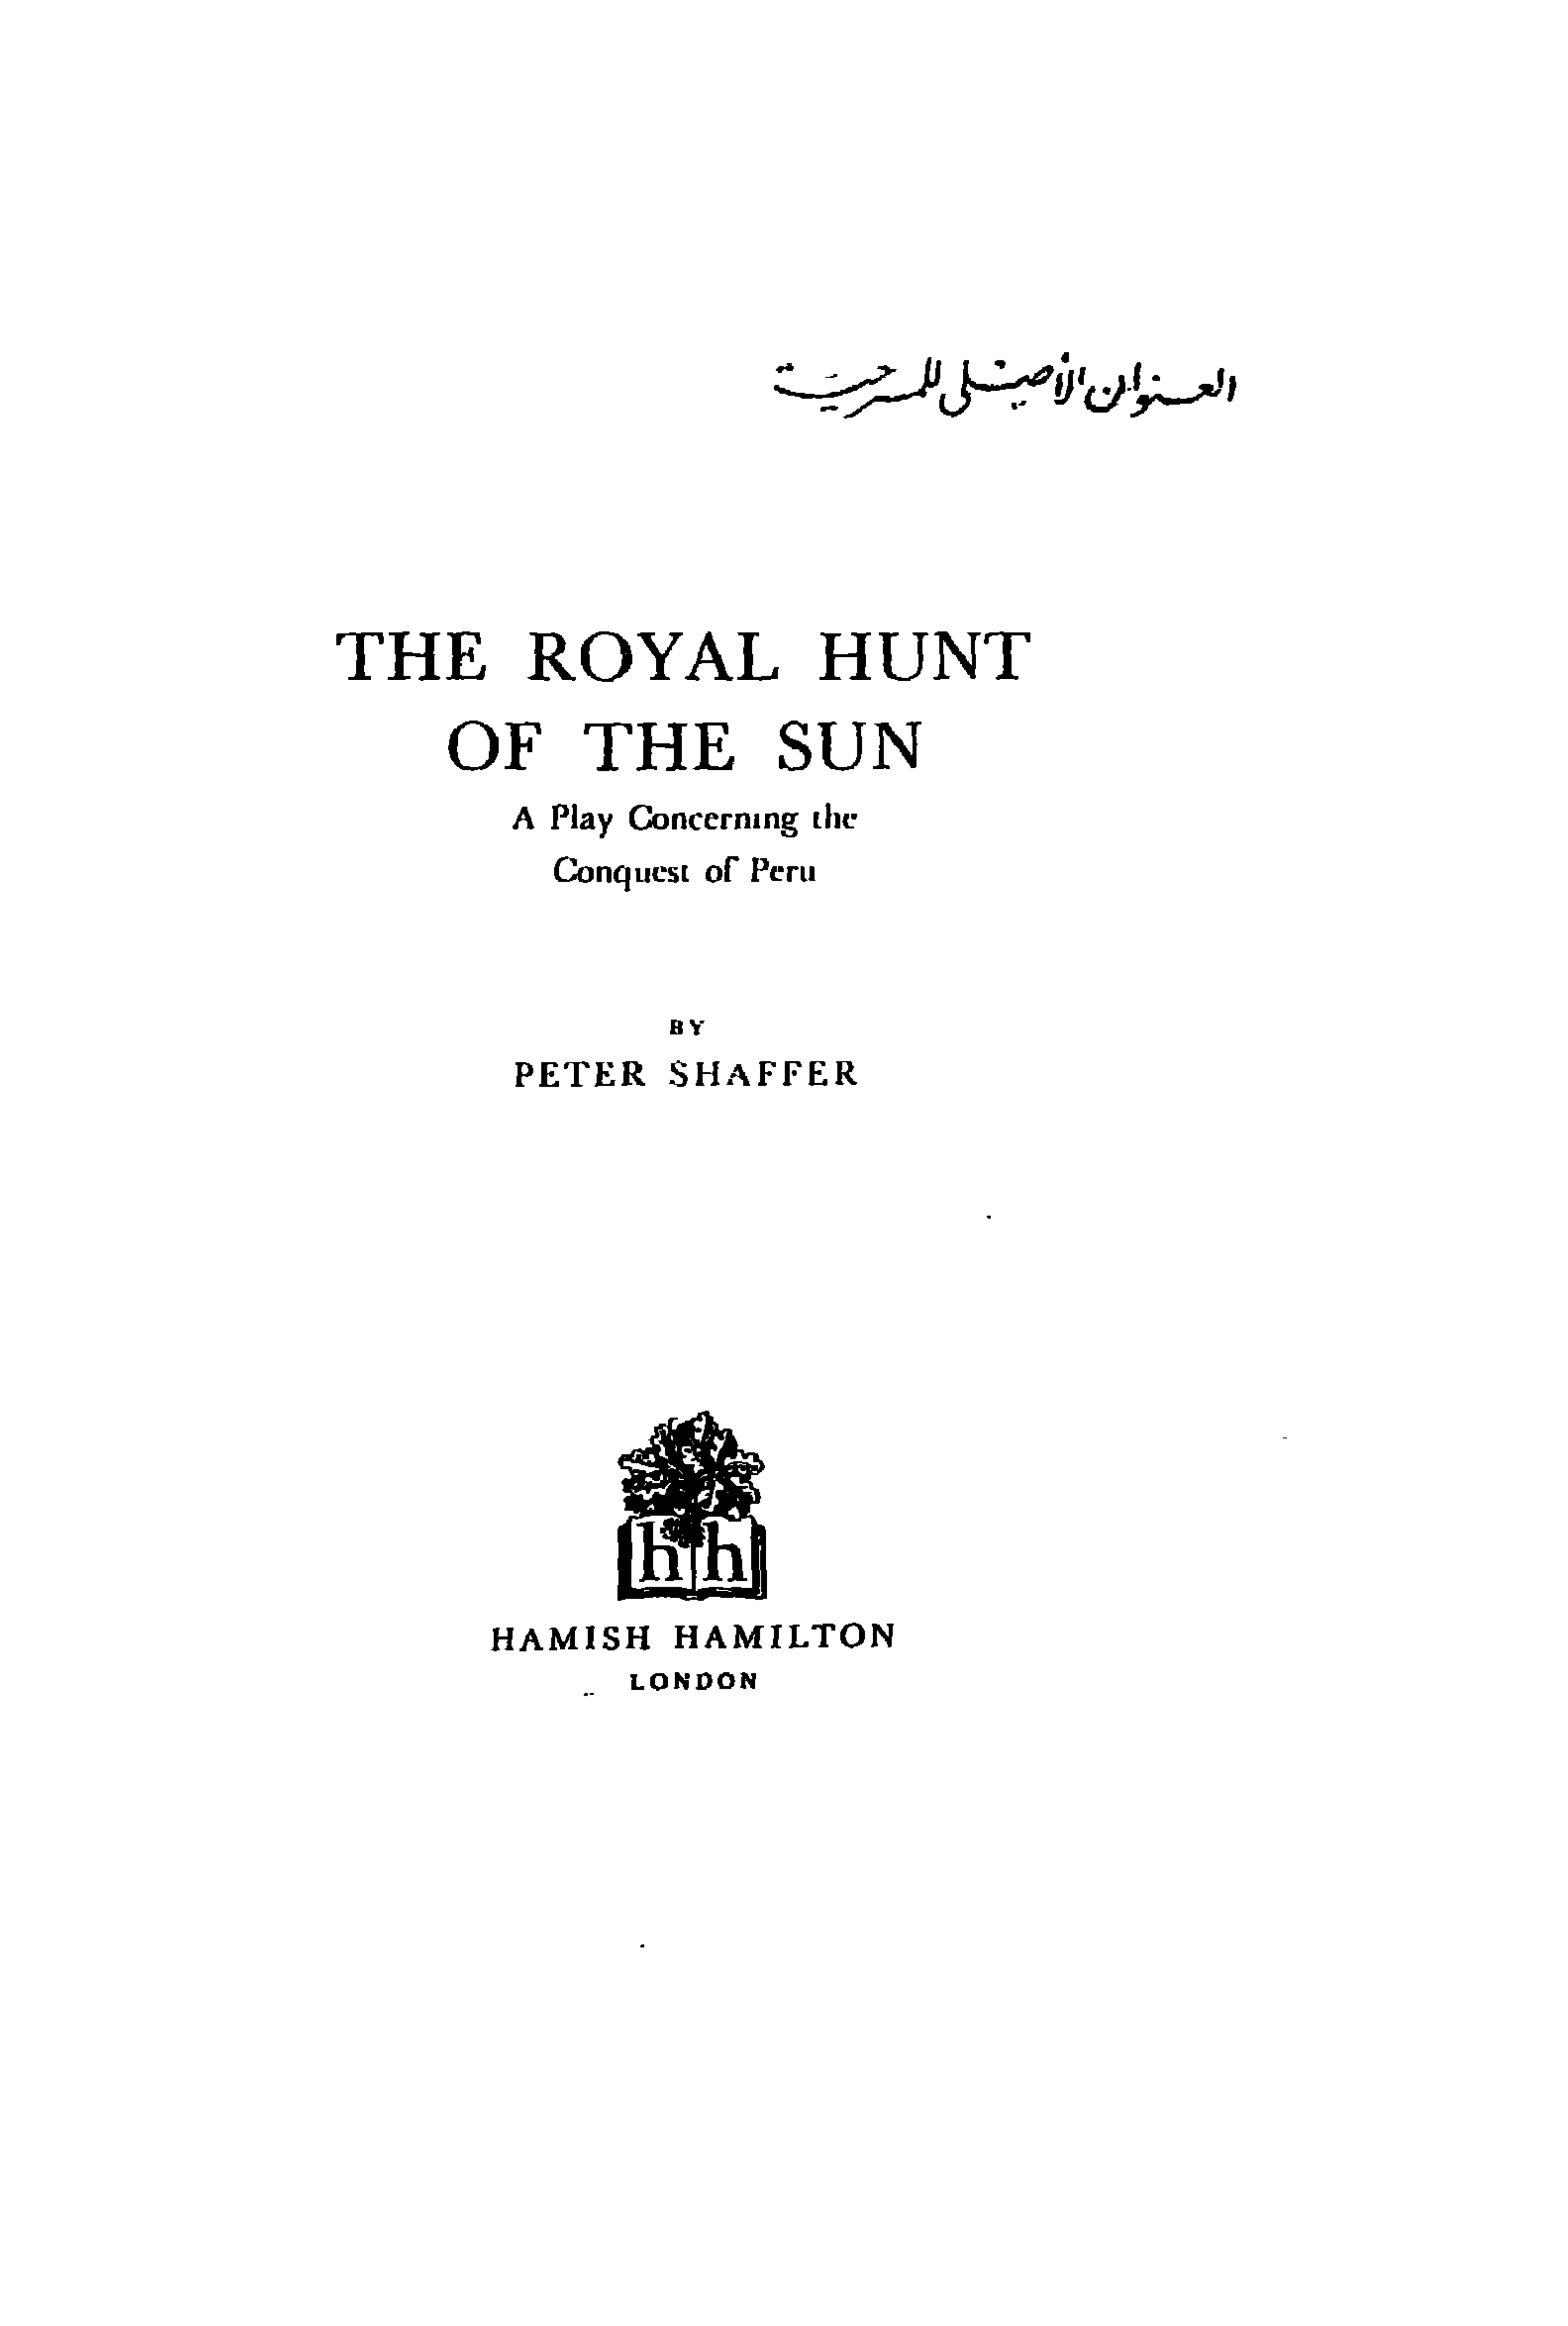 العنوان الأصلى للمسرحية
THE ROYAL HUNT
OF THE SUN
A Play Concerning the
Conquest of Peru
BY
PETER SHAFFER
h h
HAMISH HAMILTON
LONDON